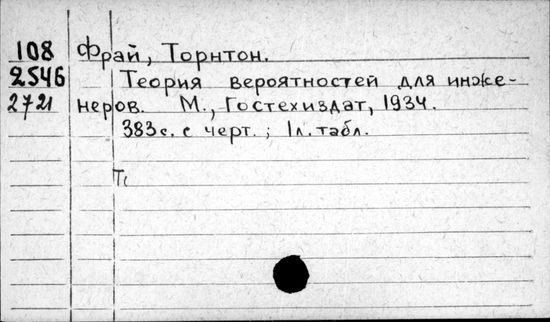 108 Фрай, Торнтон.
2546 Теория вероятностей для инже-
2721 неров. М., Гостехиздат, 1934.
383с. с черт.; 1л. табл.